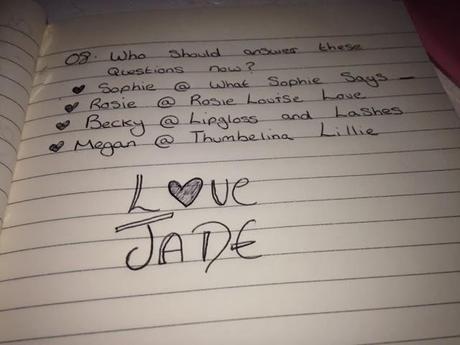 08. Who should answer these
Questions now?
♥ Sophie @ What Sophie Says —
♥ Rosie @ Rosie Louise Love
♥ Becky @ Lipgloss and Lashes
♥ Megan @ Thumbelina Lillie
L♥VE
JADE